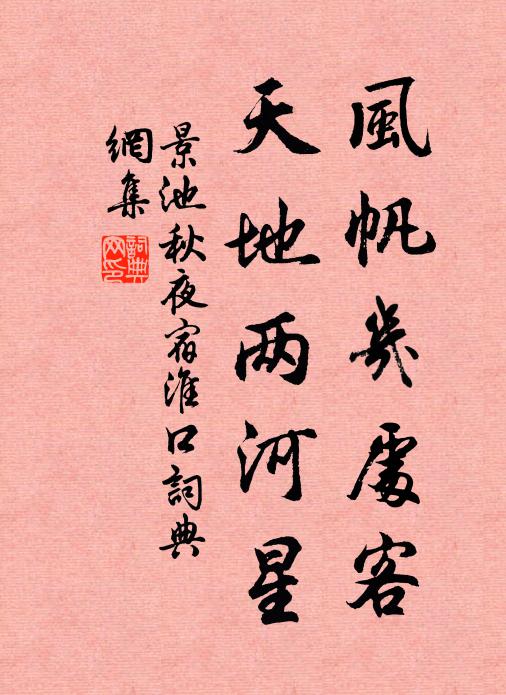 風帆幾處客
天地两河星
景池秋夜宿淮口詞典
網集
詞典
网印